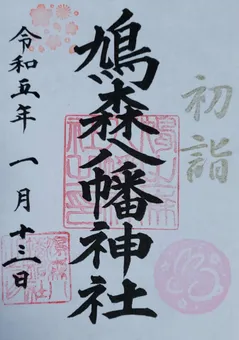 初詣
鳩森八幡神社
令和五年 一月十三日